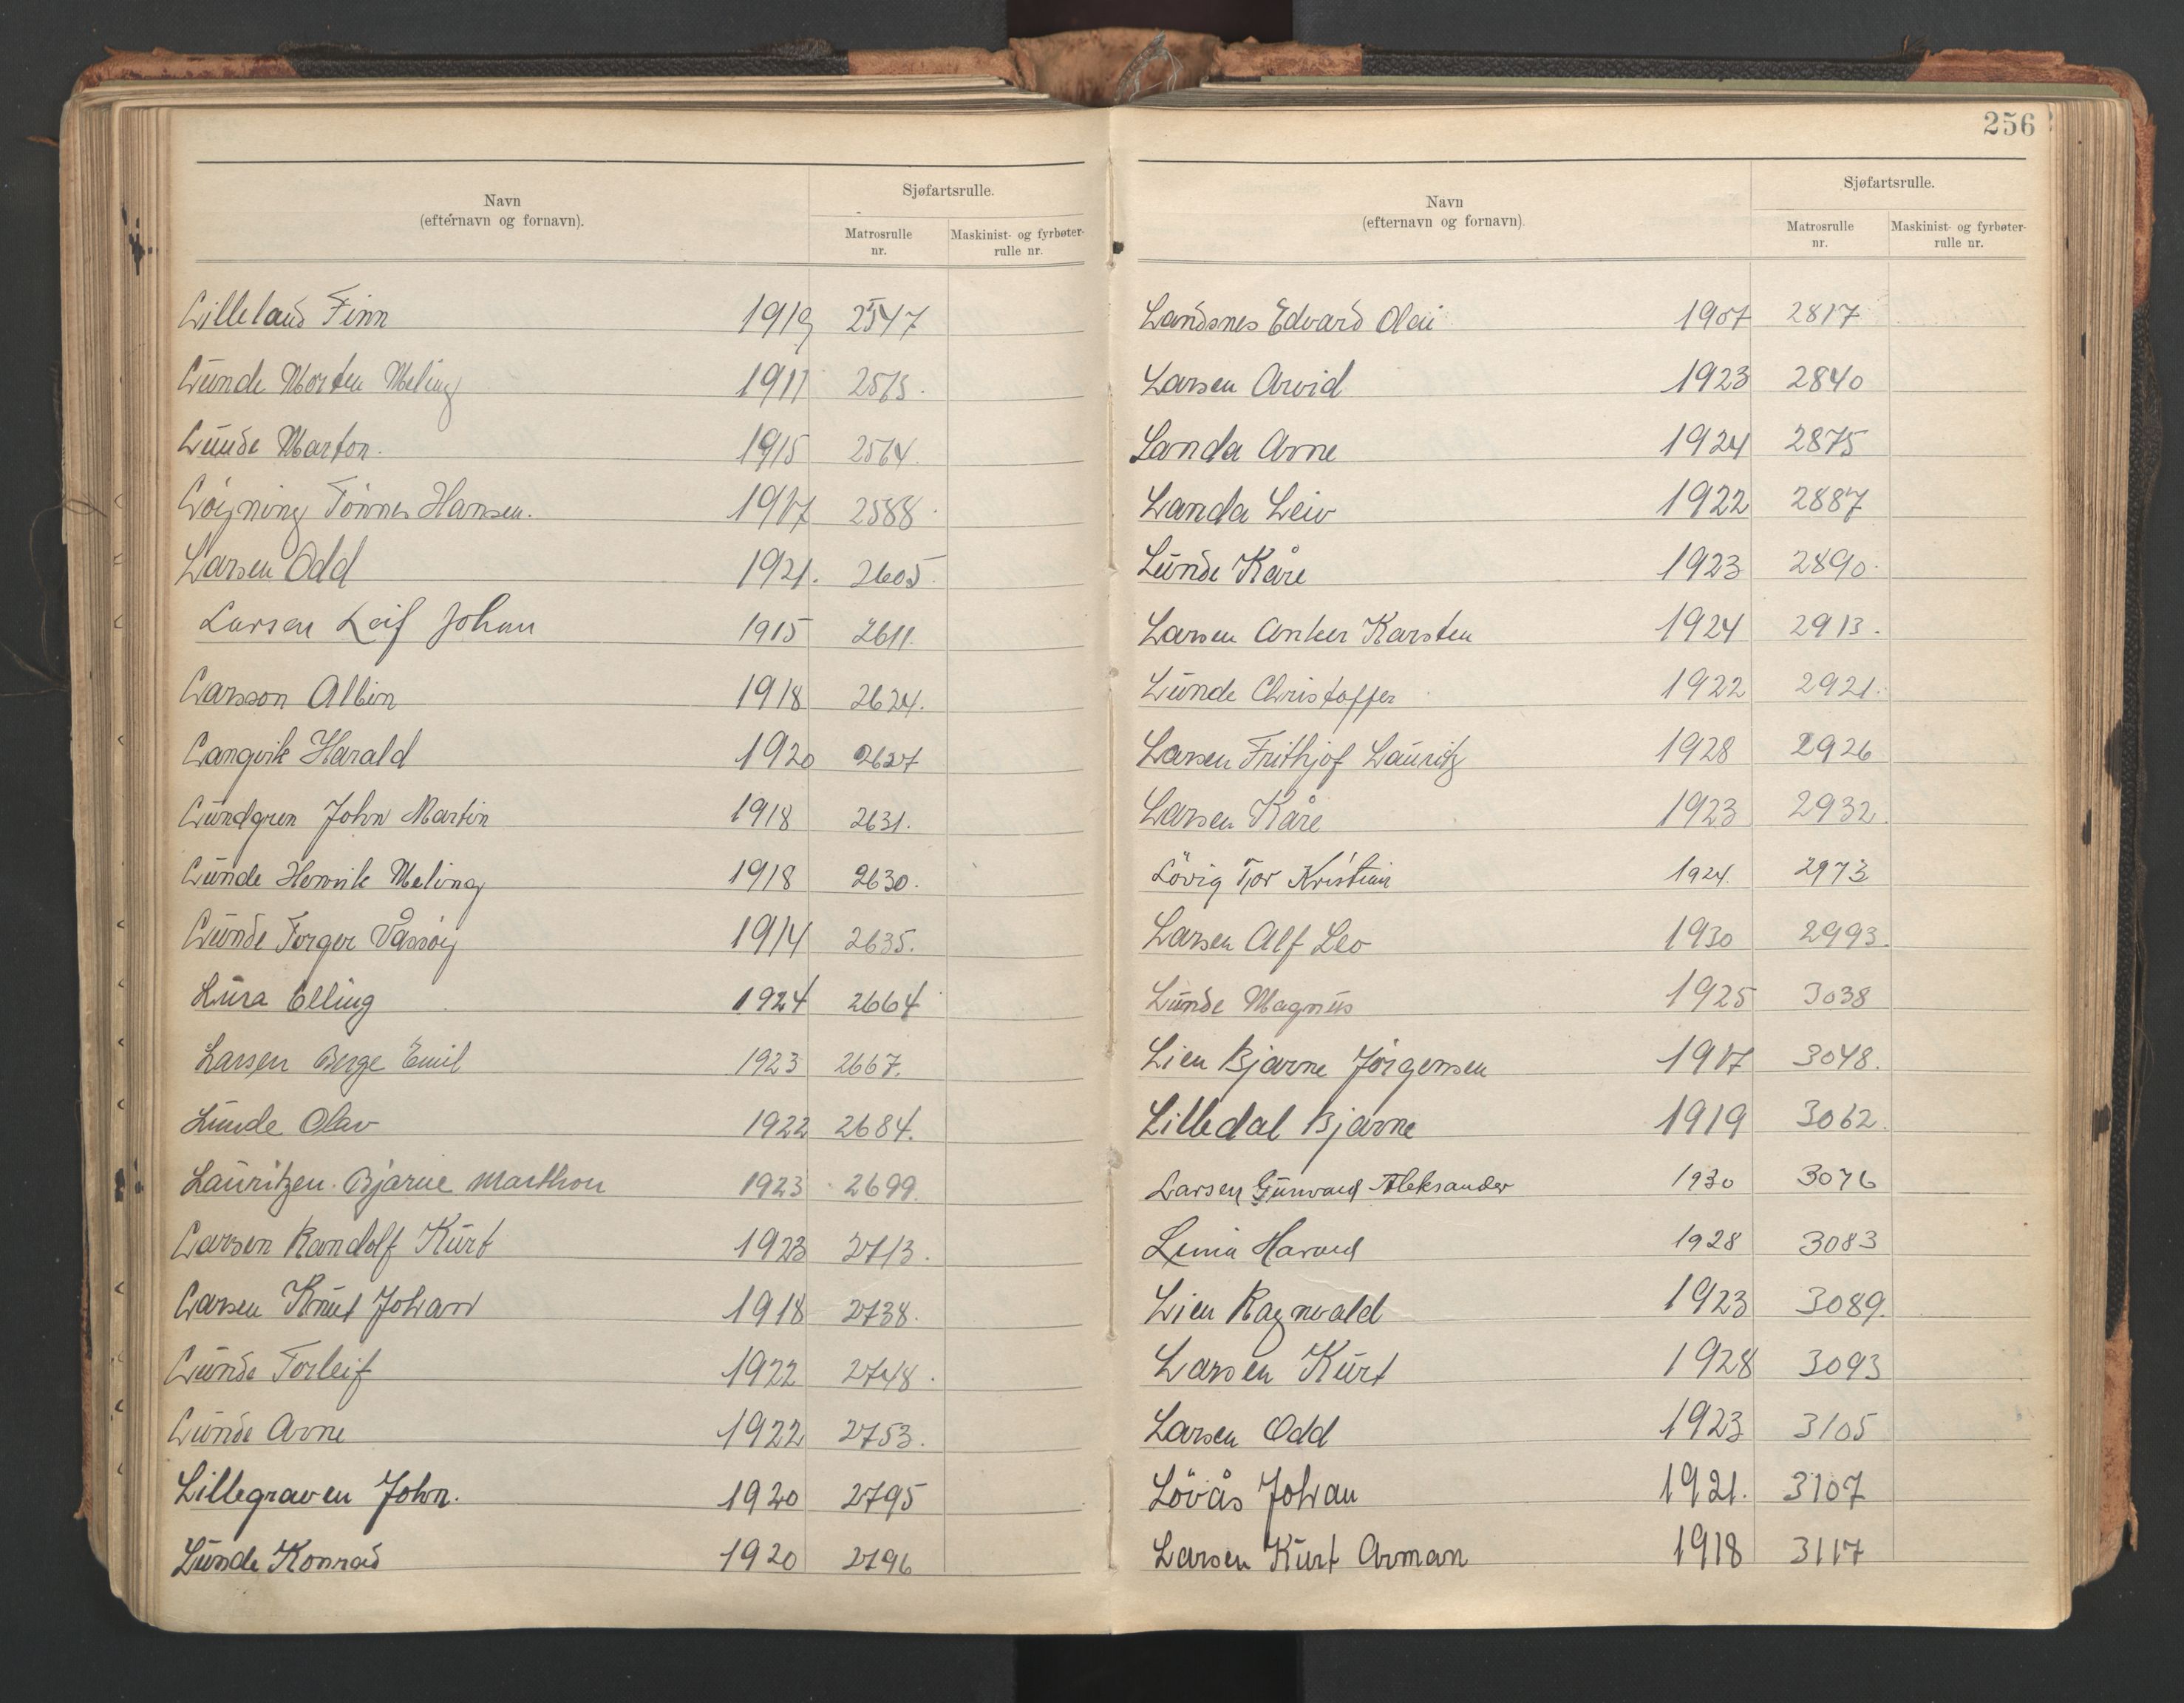 Navn
(efternavn og fornavn).
Sjøfartsrulle.
Matrosrulle nr.
Maskinist- og fyrbøter-rulle nr.
Lilleland Finn 1919 2547
Lunde Morten Meling 1911
Lunde Marton. 1915 2564.
Løyning Tønnes Hansen. 1917 2588.
Larsen Odd 1921. 2605.
Larsen Leif Johan 1915 2611.
Larsson Albin 1918 2624.
Langvik Harald 1920 2627
Lundgren John Martin 1918 2631.
Lunde Henrik Meling 1918 2630.
Lunde Torger Vassøy 1914 2635.
Lura Elling 1924 2664
Larsen Berge Emil 1923 2667.
Lunde Olav 1922 2684.
Lauritzen Bjarne Marthon 1923 2699.
Larsen Randolf Kurt 1923 2713.
Larsen Knut Johan 1918 2738.
Lunde Torleif 1922 2748.
Lunde Arne 1922 2753.
Lillegraven John. 1920 2795
Lunde Konrad 1920 2796
256
Navn
(efternavn og fornavn).
Sjøfartsrulle.
Matrosrulle nr.
Maskinist- og fyrbøter-rulle nr.
Landsnes Edvard Olai 1907 2817
Larsen Arvid 1923 2840
Landa Arne 1924 2875
Landa Leiv 1922 2887
Lunde Kåre 1923 2890.
Larsen Anker Karsten 1924 2913.
Lunde Christoffer 1922 2921.
Larsen Frithjof Lauritz 1928 2926
Larsen Kåre 1923 2932.
Lövig Tor Kristian 1924. 2973
Larsen Alf Leo 1930 2993.
Lunde Magnus 1925 3038
Lien Bjarne Jørgensen 1917 3048.
Lilledal Bjarne 1919 3062.
Larsen Gunvald Aleksander 1930 3076
Lima Harald 1928 3083
Lien Ragnvald 1923 3089.
Larsen Kurt 1928 3093
Larsen Odd 1923 3105
Lövås Johan 1921. 3107
Larsen Kurt Arman 1918 3117